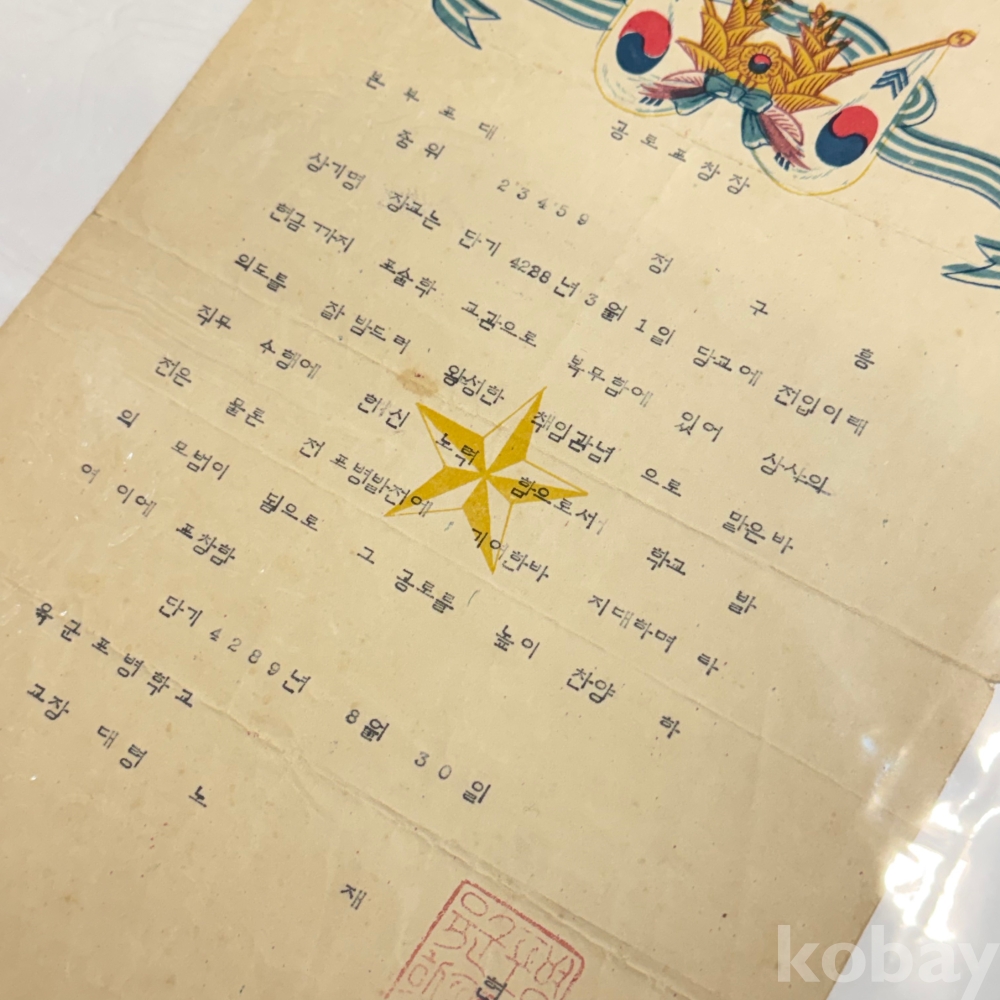 공로표창장
본부포대
중위 23459 정 구 흥
상기명 장교는 단기 4288년 3월 1일 당교에 전입이래
현금까지 포술학 교관으로 복무함에 있어 상사의
의도를 잘 받드러 왕성한 책임관념 으로 맡은바
직무 수행에 헌신 노력 함으로서 학교 발
전은 물론 전 포병발전에 기여한바 지대하며 타
의 모범이 됨으로 그 공로를 높이 찬양 하
여 이에 표창함
단기 4289년 8월 30일
육군포병학교
교장 대령 노 재 현
kobay